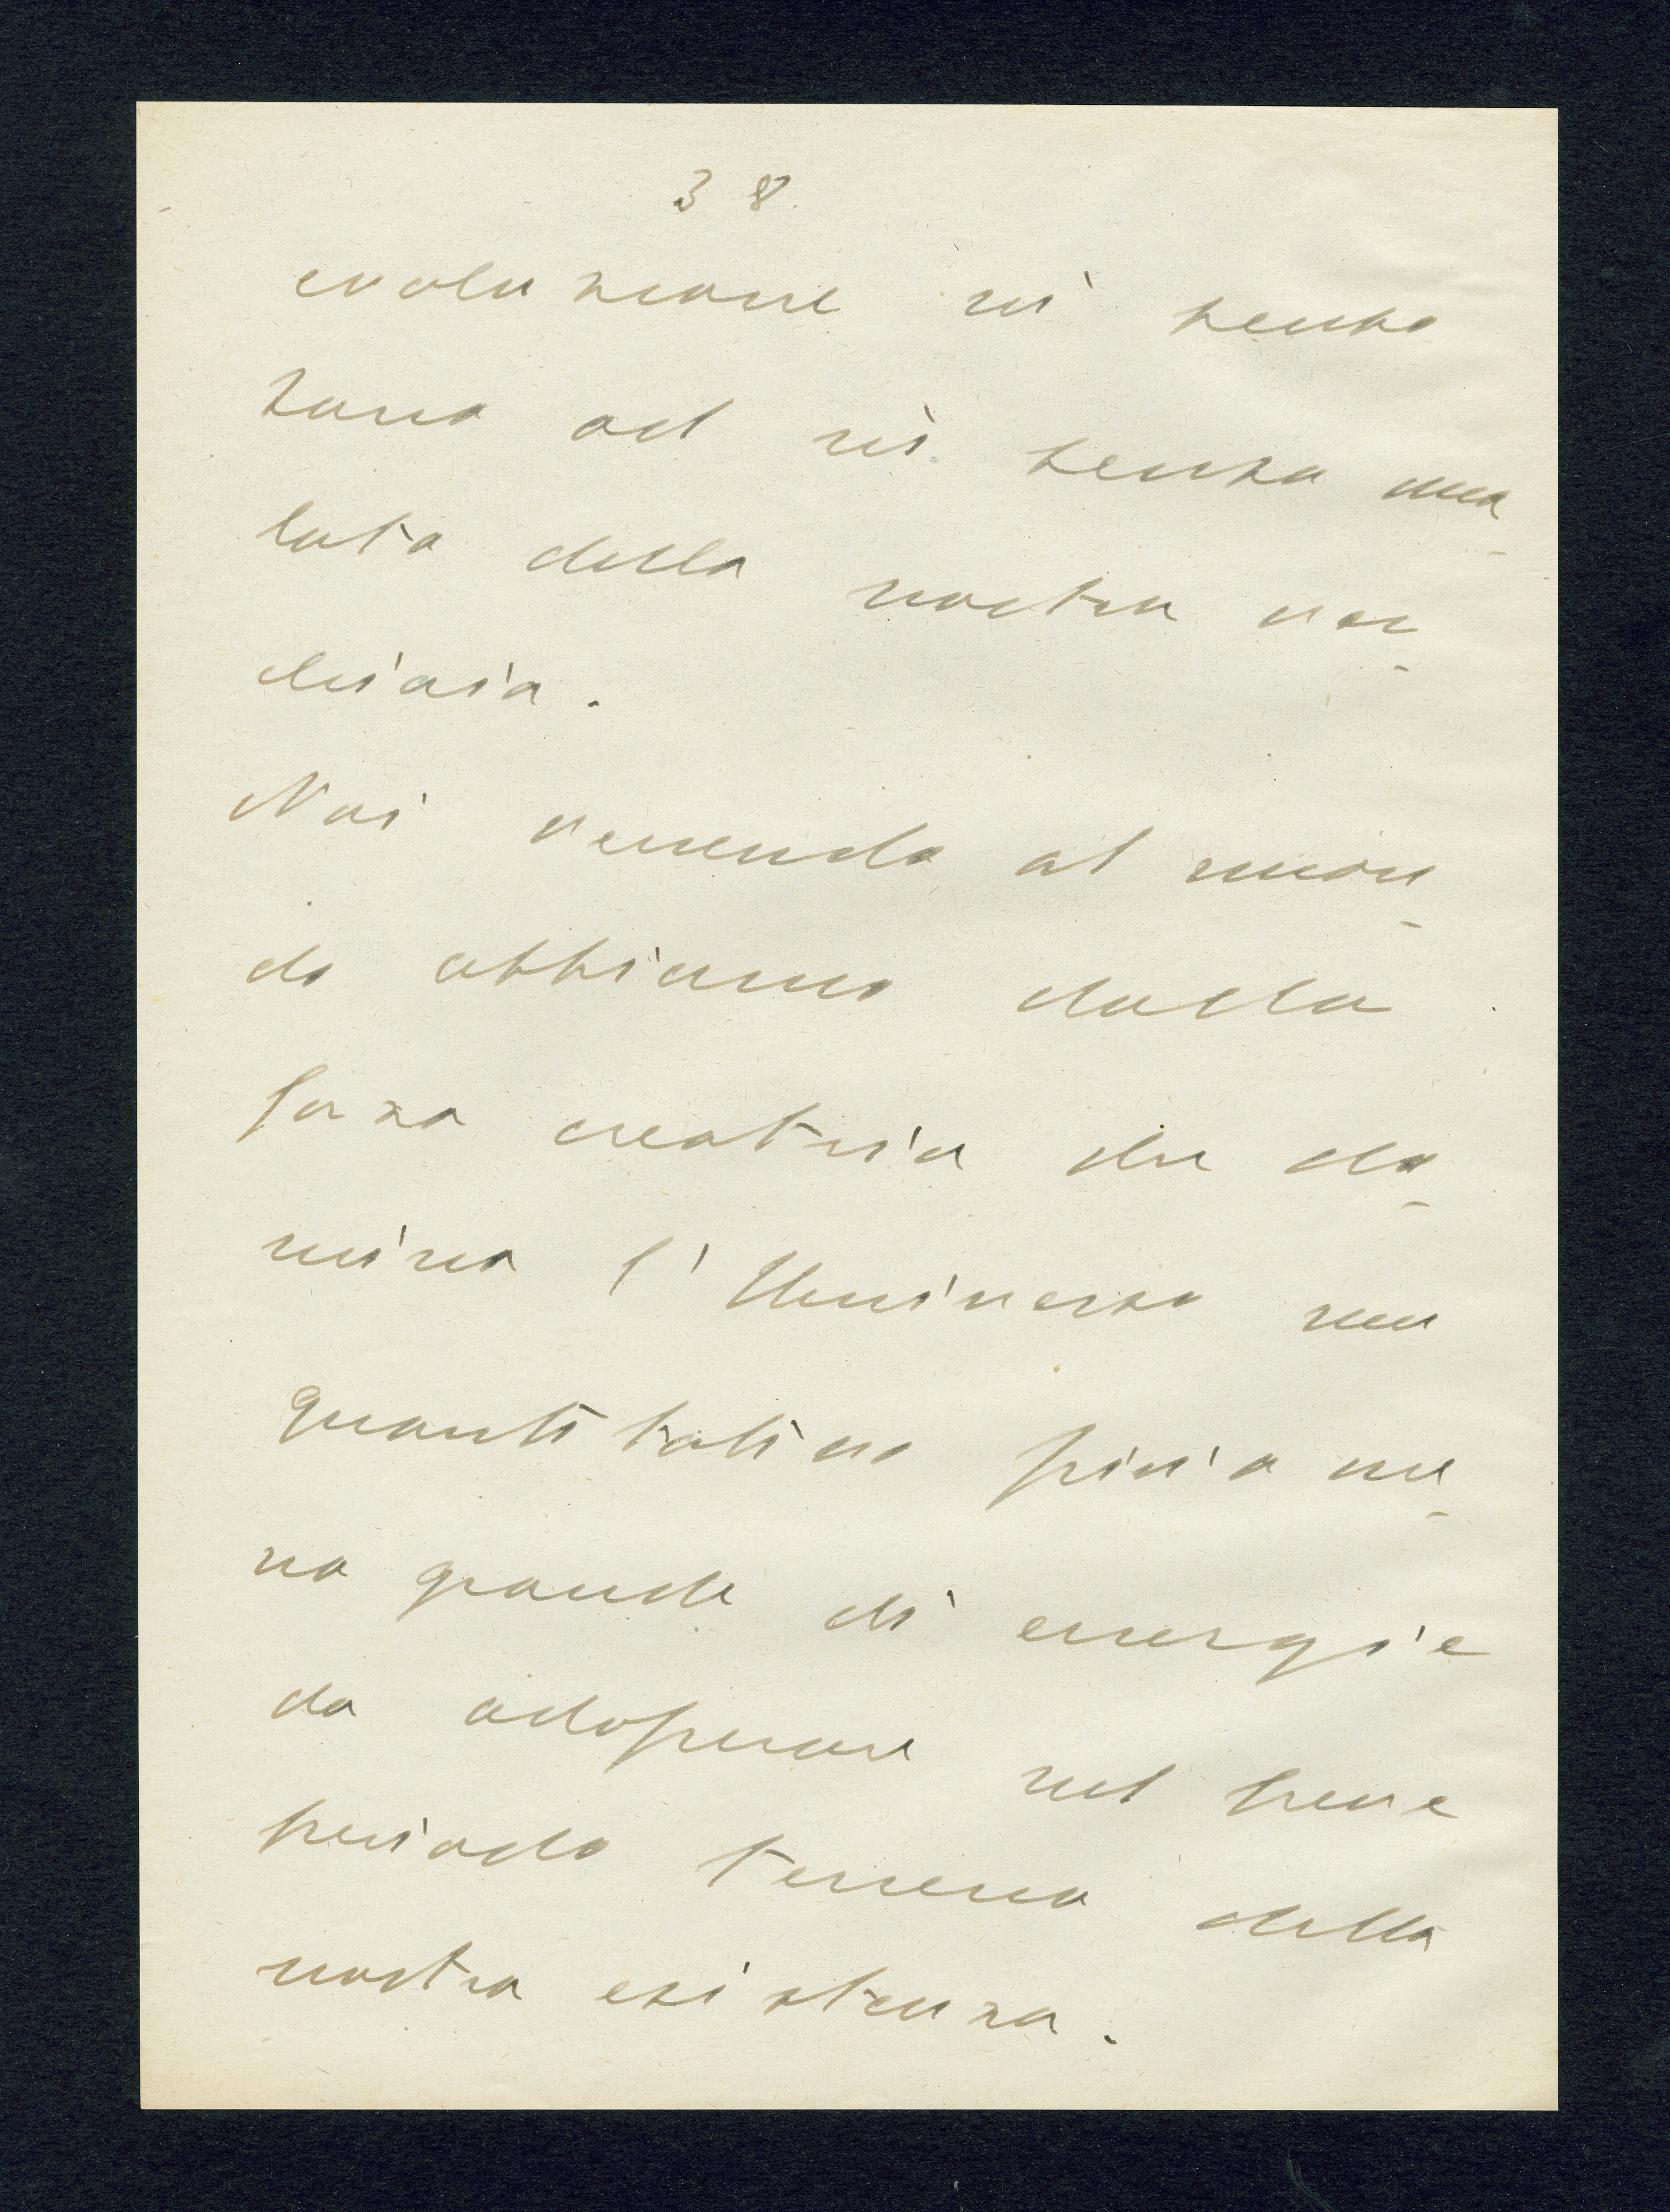 38.
evoluzione si senta
sano ed si senta ma
lato della nostra vec
chiaia.
Noi venendo al mon
do abbiamo dalla
forza creatrice che do
mina l'Universo un
quantitativo più o me
no grande di energie
da adoperare nel breve
periodo terreno della
nostra esistenza.